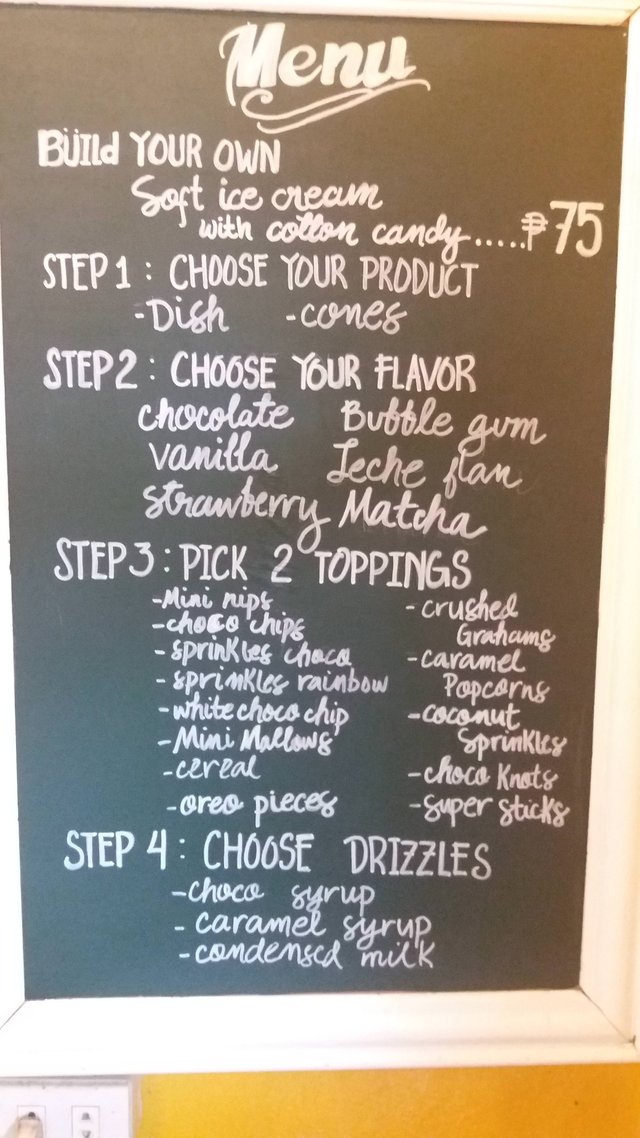 Menu
BÜILd YOUR OWN
Soft ice cream
with cotton candy.....₱75
STEP 1 : CHOOSE YOUR PRODUCT
-Dish -cones
STEP 2 : CHOOSE YOUR FLAVOR
chocolate Bubble gum
vanilla Leche flan
strawberry Matcha
STEP 3 : PICK 2 TOPPINGS
-Mini nips -crushed
-choco chips Grahams
-sprinkles choco -caramel
-sprinkles rainbow Popcorns
-white choco chip -coconut
-Mini Mallows Sprinkles
-cereal -choco Knots
-oreo pieces -super sticks
STEP 4 : CHOOSE DRIZZLES
-choco syrup
-caramel syrup
-condensed milk